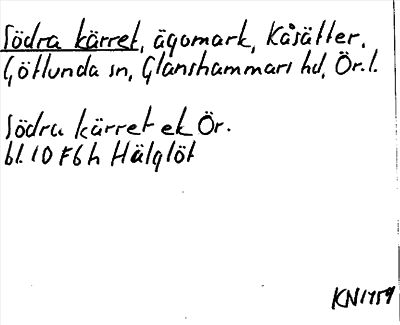 Södra kärret, ägomark, Kåsätter.
Götlunda sn, Glanshammars hd, Ör. l.
Södra kärret ek Ör.
bl. 10 F6 h Hälglöt